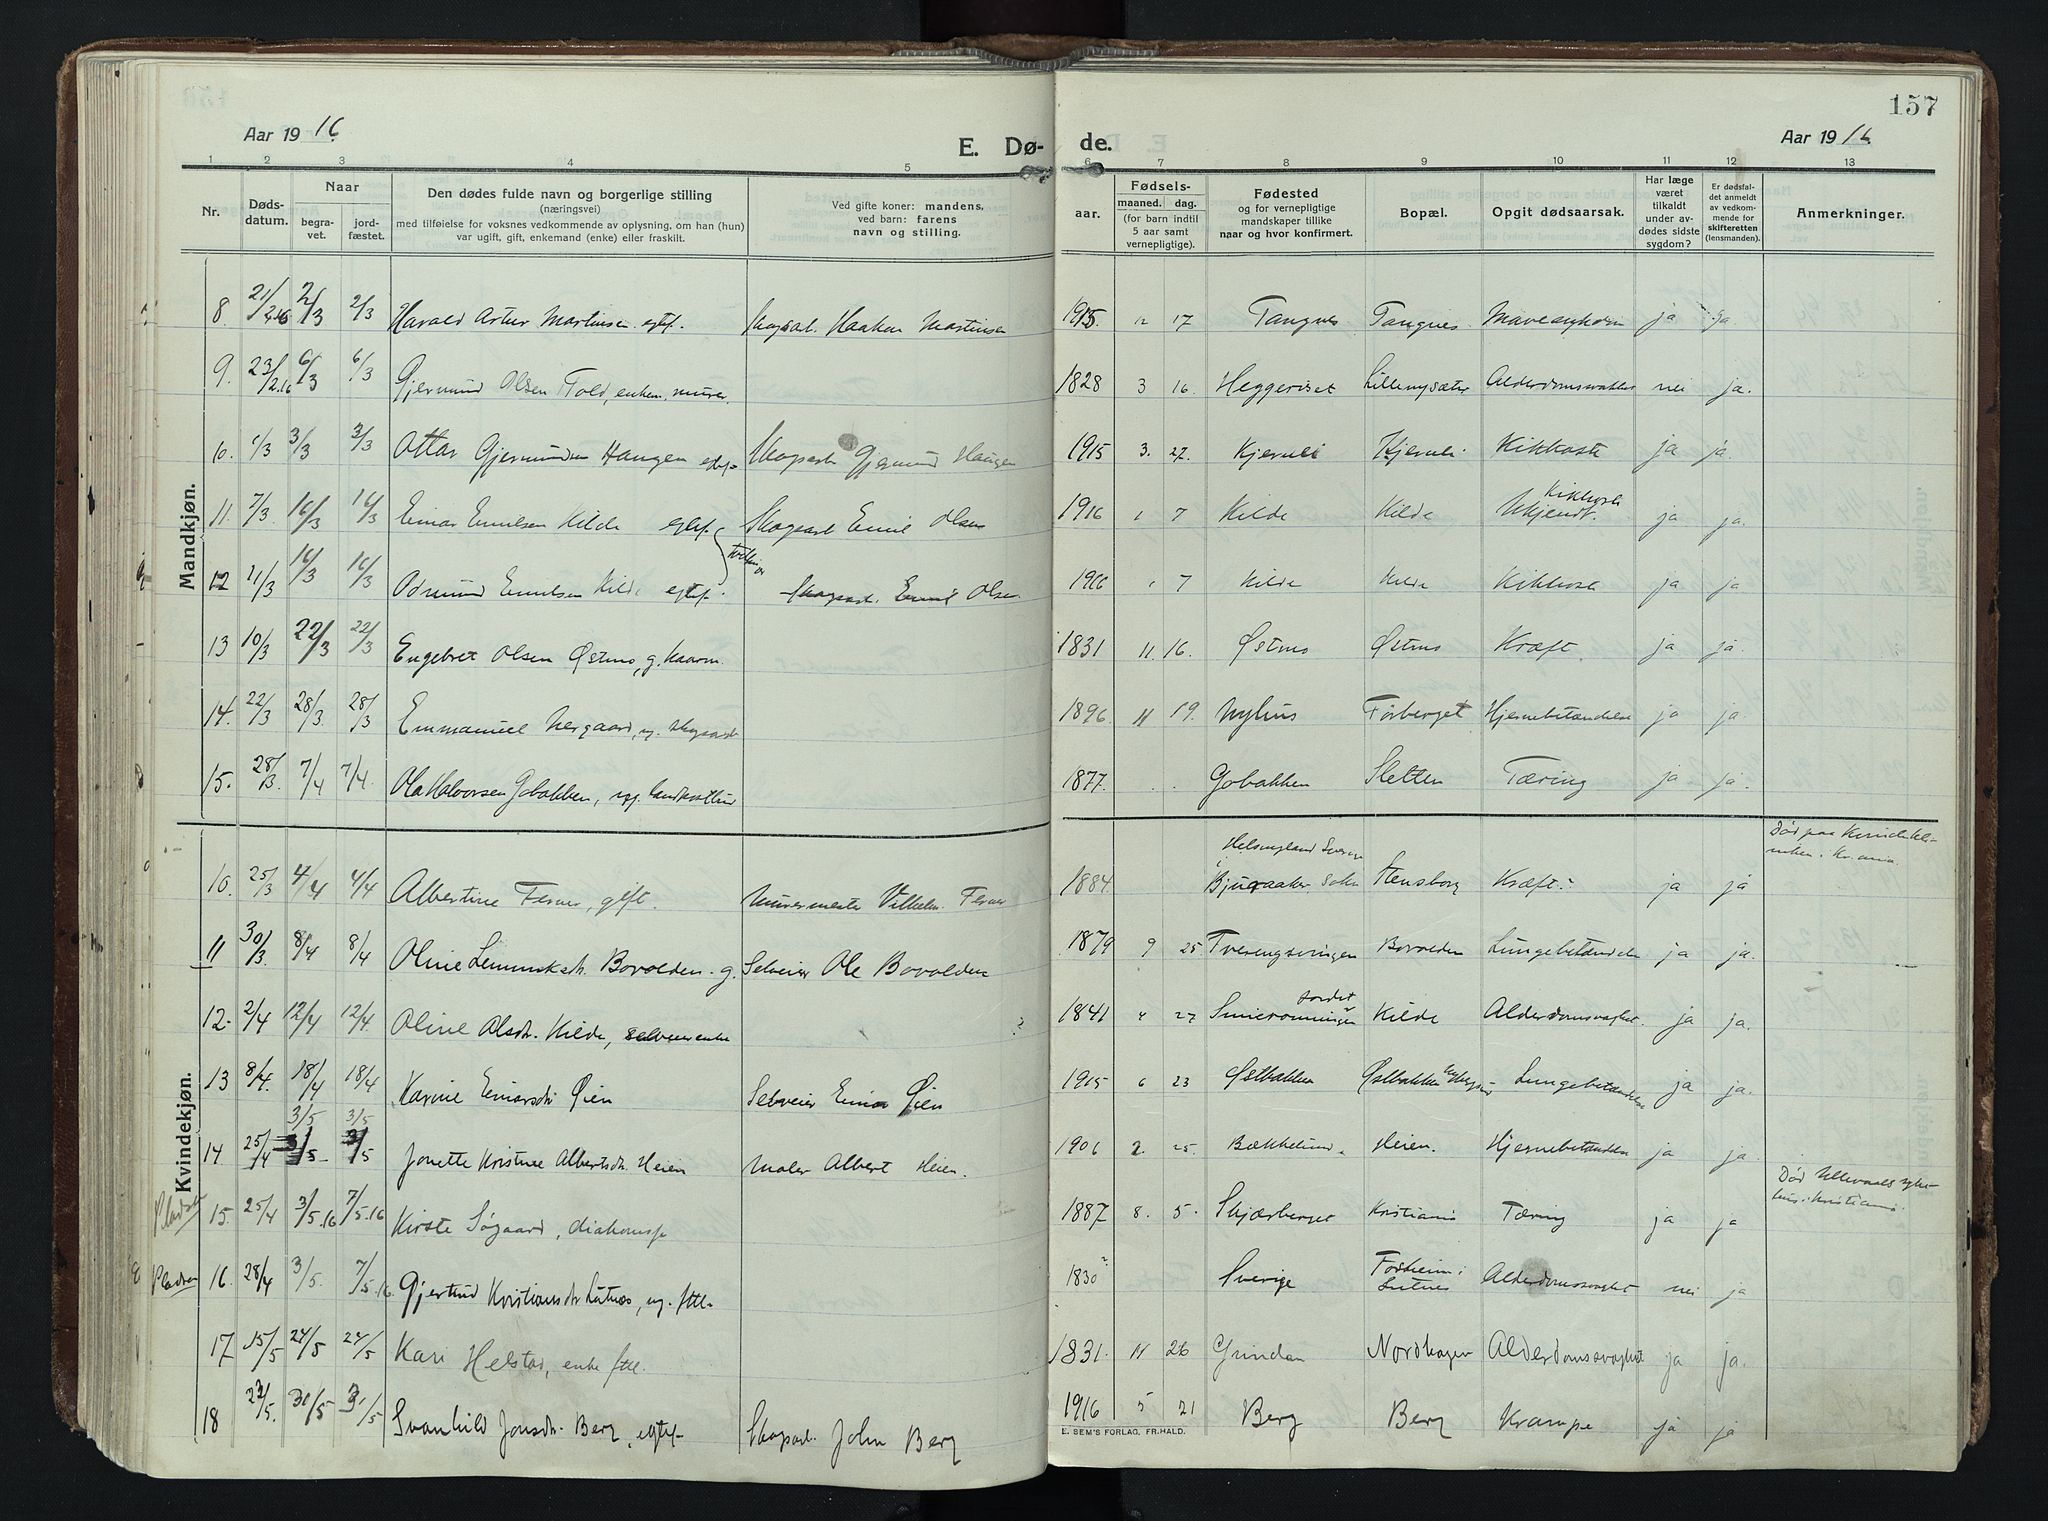 157
Aar 1916.
E. Dø-
de.
Aar 1916
1 2 3 4 5 6 7 8 9 10 11 12 13
Nr.
Døds-
datum.
Naar
begra-
vet.
jord-
fæstet.
Den dødes fulde navn og borgerlige stilling
(næringsvei)
med tilføielse for voksnes vedkommende av oplysning, om han (hun)
var ugift, gift, enkemand (enke) eller fraskilt.
Ved gifte koner: mandens,
ved barn: farens
navn og stilling.
Fødsels-
aar.
maaned. dag.
(for barn indtil
5 aar samt
vernepligtige).
Fødested
og for vernepligtige
mandskaper tillike
naar og hvor konfirmert.
Bopæl.
Opgit dødsaarsak.
Har læge
været
tilkaldt
under av-
dødes sidste
sygdom?
Er dødsfal-
det anmeldt
av vedkom-
mende for
skifteretten
(lensmanden).
Anmerkninger.
Mandkjøn.
8 21/2.16 2/3 2/3 Harald Artur Martinsen egtef. Skogsarb. Haakon Martinsen 1915. 12 17 Tangnes Tangnes ja ja
9. 23/2.16 6/3 6/3 Gjermund Olsen Told, enkem. murer. 1828 3 16. Heggeriset Lillemysæter nei ja.
10. 1/3 3/3 3/3 Ottar Gjermundsen Haugen egtef. Skogsarb Gjermund Haugen 1915 3. 27. Kjernli Kjernli Kikhoste ja ja.
11. 7/3. 16/3 16/3 Einar Emilsen Kilde egtef. Skogsarb Emil Olsen 1916 1 7 Kilde Kilde Kikhoste Ukjendt. ja ja.
Tvillinger
12 11/3 16/3 16/3 Odmund Emilsen Kilde egtef. Skogsarb. Emil Olsen. 1916 1 7 Kilde Kilde Kikhoste ja ja
13 10/3 22/3 22/3 Engebret Olsen Østmo, g. kaarm. 1831 11. 16. Østmo Østmo Kræft. ja ja.
14. 22/3 28/3. 28/3 Emmanuel Nergaard, ug. skogsarb 1896 11 19. Nyhus Forberget Hjernebetændelse ja ja
15. 28/3. 7/4 7/4. Ola Halvorsen Gobakken, ug. 1877. . . Gobakken Sletten Tæring ja ja.
Kvindekjøn.
10. 25/3 4/4 4/4 Albertine Ferner, gift. Murermester Vilhelm Ferner 1884. Helsingland Sverige i Bjuraaker Sokn Stensborg Kræft. ja ja Død paa Kvindekli-
niken i Kr.ania
11 30/3. 8/4 8/4 Oline Bovolden. g. Selveier Ole Bovolden 1879 9 25 Tverengsvingen Bovolden Lungebetændelse ja ja.
12. 2/4 12/4 12/4. Oline Olsdtr. Kilde, selveierenke ? 1841 4 27 Kilde Alderdomsvaghet. ja ja.
13 8/4. 18/4 18/4 Karine Einarsdtr Øien Selveier Einar Øien 1915 6 23 Østbakken Østbakken Lungebetændelse ja ja.
14 25/4 3/5 3/5 3/5 3/5 Jonette Kristine Albertsdtr. Heien Maler Albert Heien. 1906 2. 25. Bækkelund. Heien. Hjernebetændelse ja ja.
15. 25/4 3/5.16 7/5.16 Kirste Søgaard, 1887 8. 5. Skjærberget Kristiania Tæring ja ja Død Ullevaals syke-
hus i Kristiania.
Pladsen 16. 28/4 3/5. 7/5.16 Gjertrud Kristiansdtr Lutnes, ug. fttl. 1830? Sverige Forheim i
Lutnes Alderdomssvaghet nei ja
17 15/5 24/5 24/5 Kari Helstad, enke fttl. 1831. 11 26 Grindan Nordhagen Alderdomssvaghet ja ja.
18 23/5. 31/5 31/5 Svanhild Jonsdtr. Berg, egtef. Skogsarb. John Berg 1916 5 21 Berg Berg Krampe ja ja
E. SEM'S FORLAG, FR.HALD.